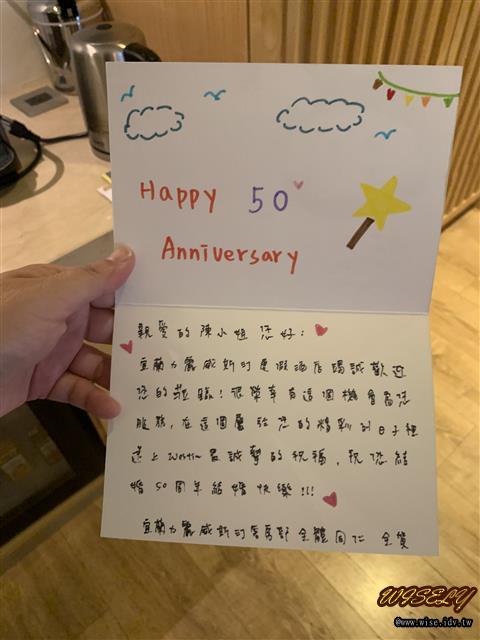 Happy 50
Anniversary
親愛的陳小姐您好：
宜蘭力麗威斯汀度假酒店竭誠歡迎
您的蒞臨！很榮幸有這個機會為您
服務，在這個屬於您的精彩的日子裡
送上 Westin 最誠摯的祝福，祝您結
婚50周年結婚快樂!!!
宜蘭力麗威斯汀客房部全體同仁 全賀
WISELY
@www.wise.idv.tw